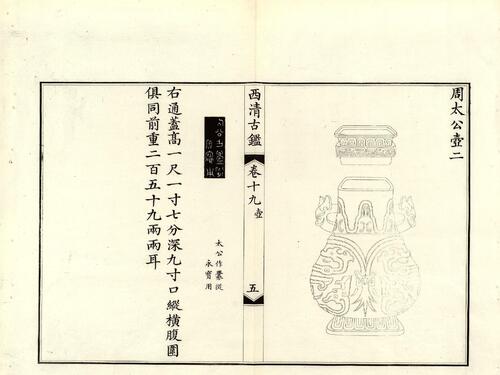 周太公壺二
西清古鑑
卷十九 壺
五
太公作𣪘從
永寶用
右通蓋高一尺一寸七分深九寸口縱橫腹圍
俱同前重二百五十九兩兩耳